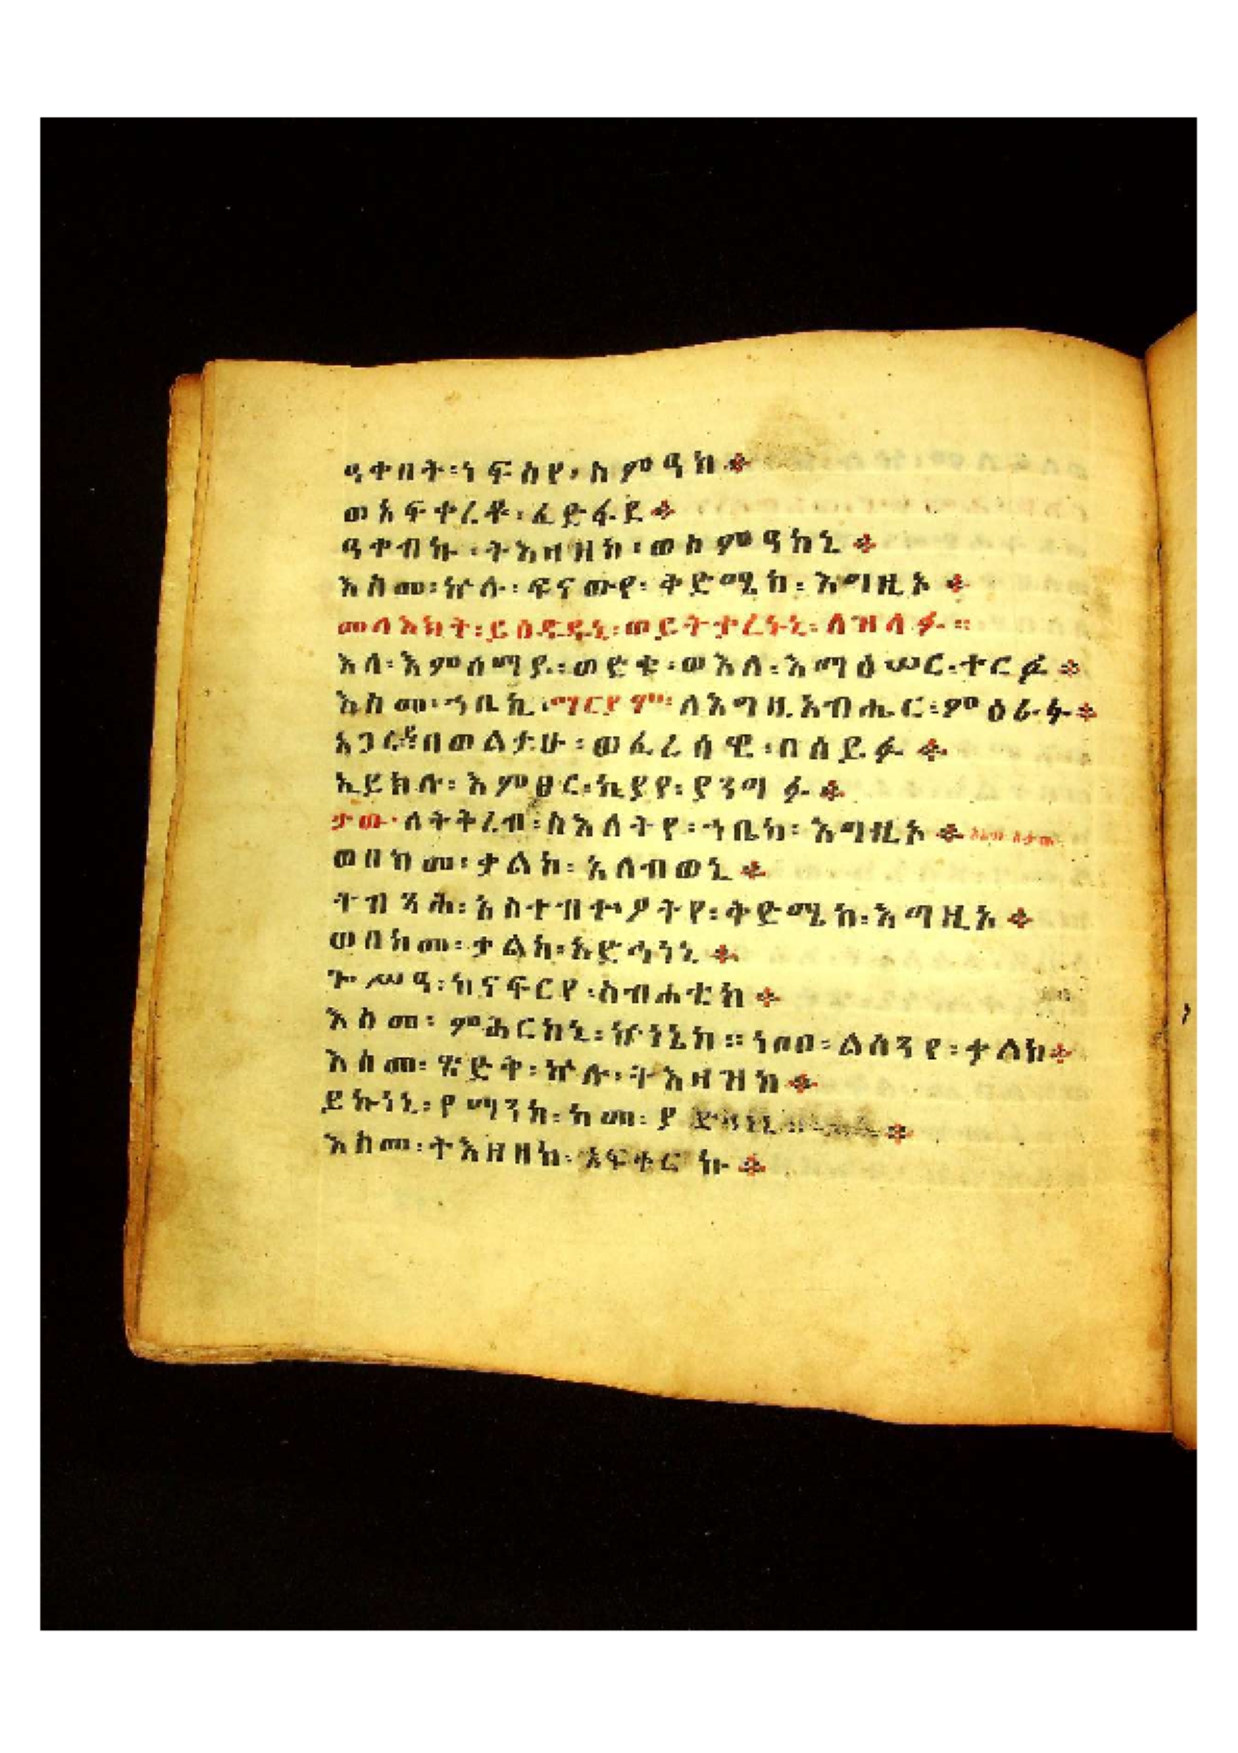 ዓቀበት፡ነፍስየ፡ስምዓከ፨
ወአፍቀረቶ፡ፈድፋደ፨
ዓቀብኩ፡ትእዛዘከ፡ወስምዓከኒ፨
እስመ፡ኵሉ፡ፍናውየ፡ቅድሜከ፡እግዚኦ፨
መላእክት፡ይሴብሑኪ፡ወይትቀረኑኒ፡ለዝላፉ።
እለ፡እምሰማይ፡ወድቁ፡ወእለ፡እማዕሠር፡ተርፉ፨
እስመ፡ኀቤኪ፡ማርያም፡ለእግዚአብሔር፡ምዕራፉ፨
አጋር፡በወልታሁ፡ወፈረሰዊ፡በሰይፉ፨
ኢይክሉ፡እምፀር፡ኪያየ፡ያንግፉ፨
ታው፡ለትቅረብ፡ስእለትየ፡ኀቤከ፡እግዚኦ፨
ወበከመ፡ቃልከ፡አለብወኒ፨
ትብጻሕ፡አስተብቍዖትየ፡ቅድሜከ፡እግዚኦ፨
ወበከመ፡ቃልከ፡አድኅነኒ፨
ጐሥዓ፡ከናፍርየ፡ስብሐቲከ፨
እስመ፡ምሕርከኒ፡ኵነኔከ።ነበበ፡ልሳንየ፡ቃልከ፨
እስመ፡ጽድቅ፡ኵሉ፡ትእዛዝከ፨
ይኩነኒ፡የማንከ፡ከመ፡ያድኅነኒ።
እስመ፡ትእዛዘከ፡አፍቀርኩ፨